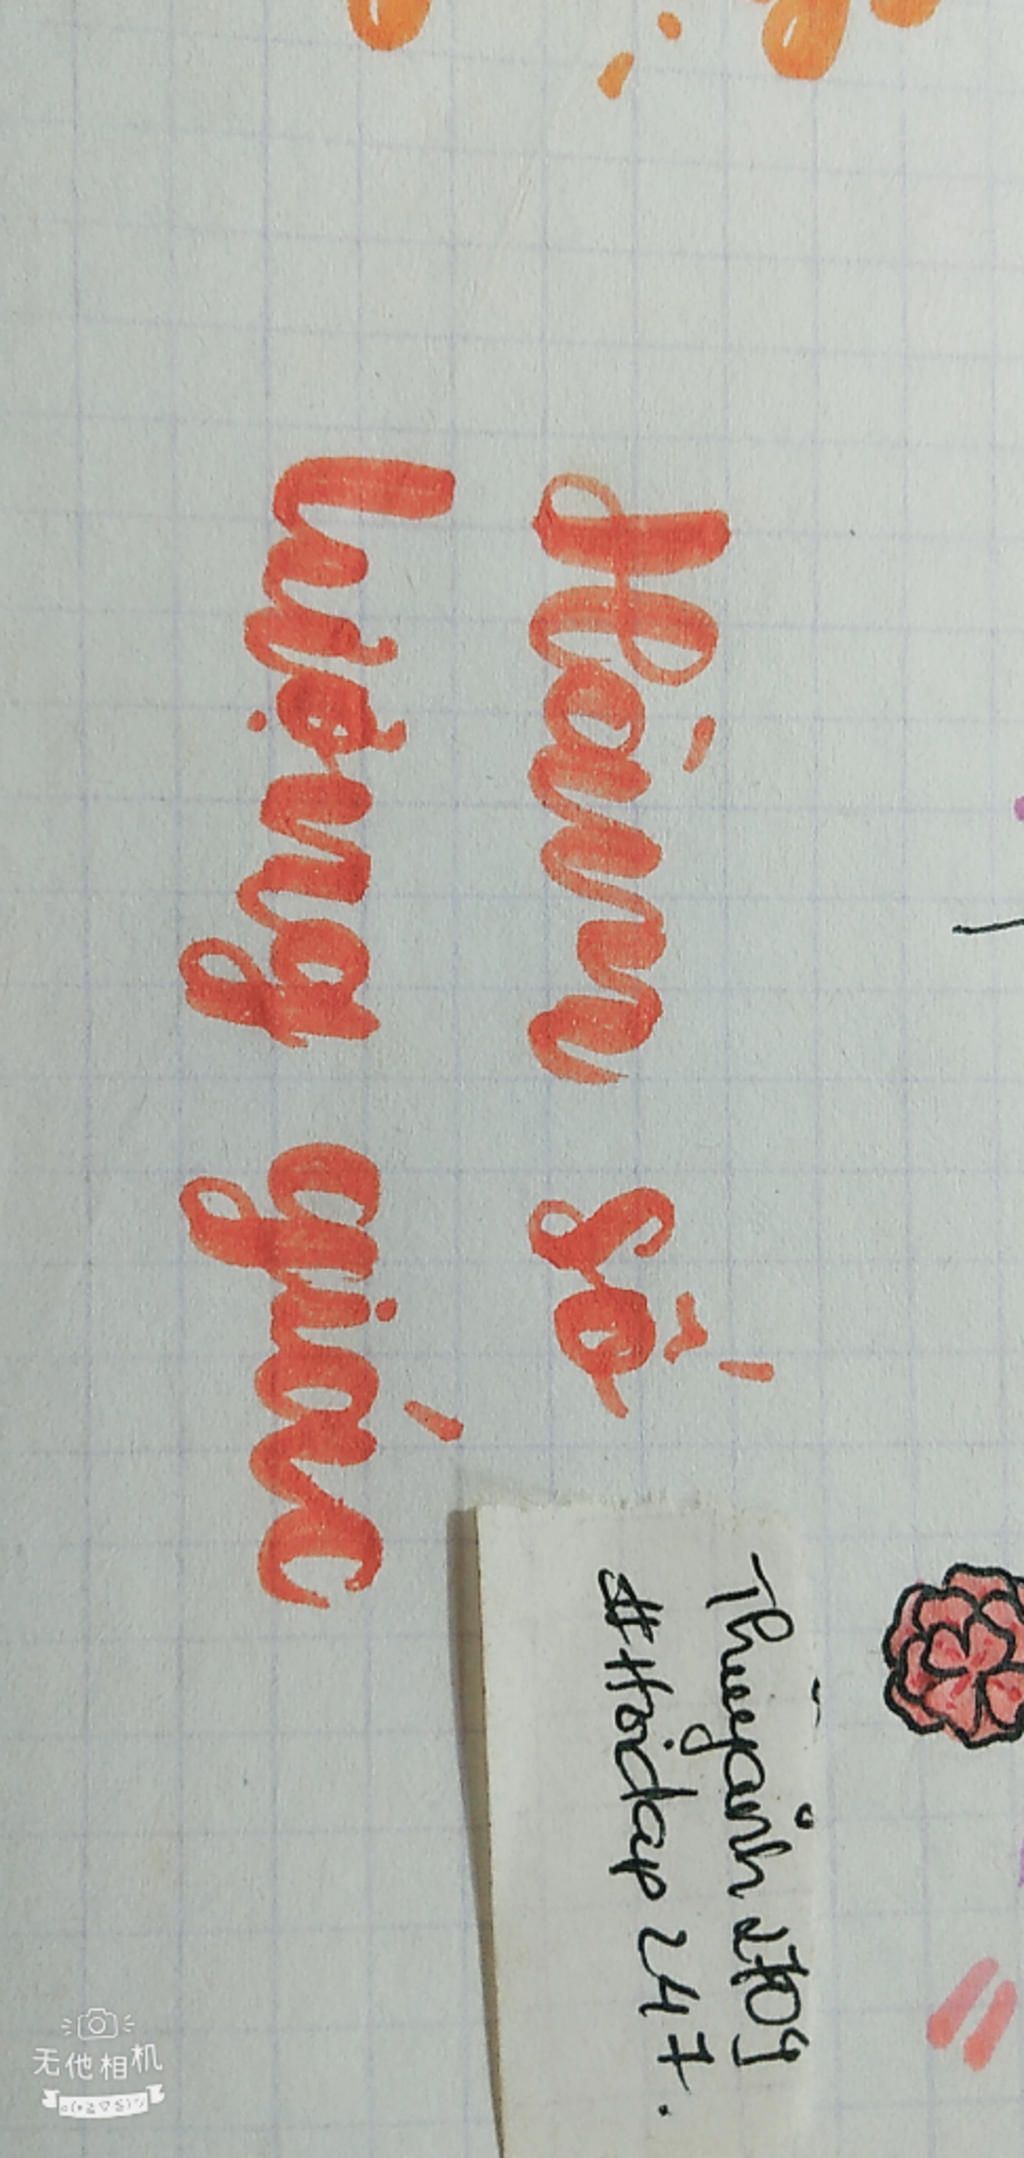 Hàm số
lượng giác
Thuỷánh 2709
#Hoidap 247.
无他相机